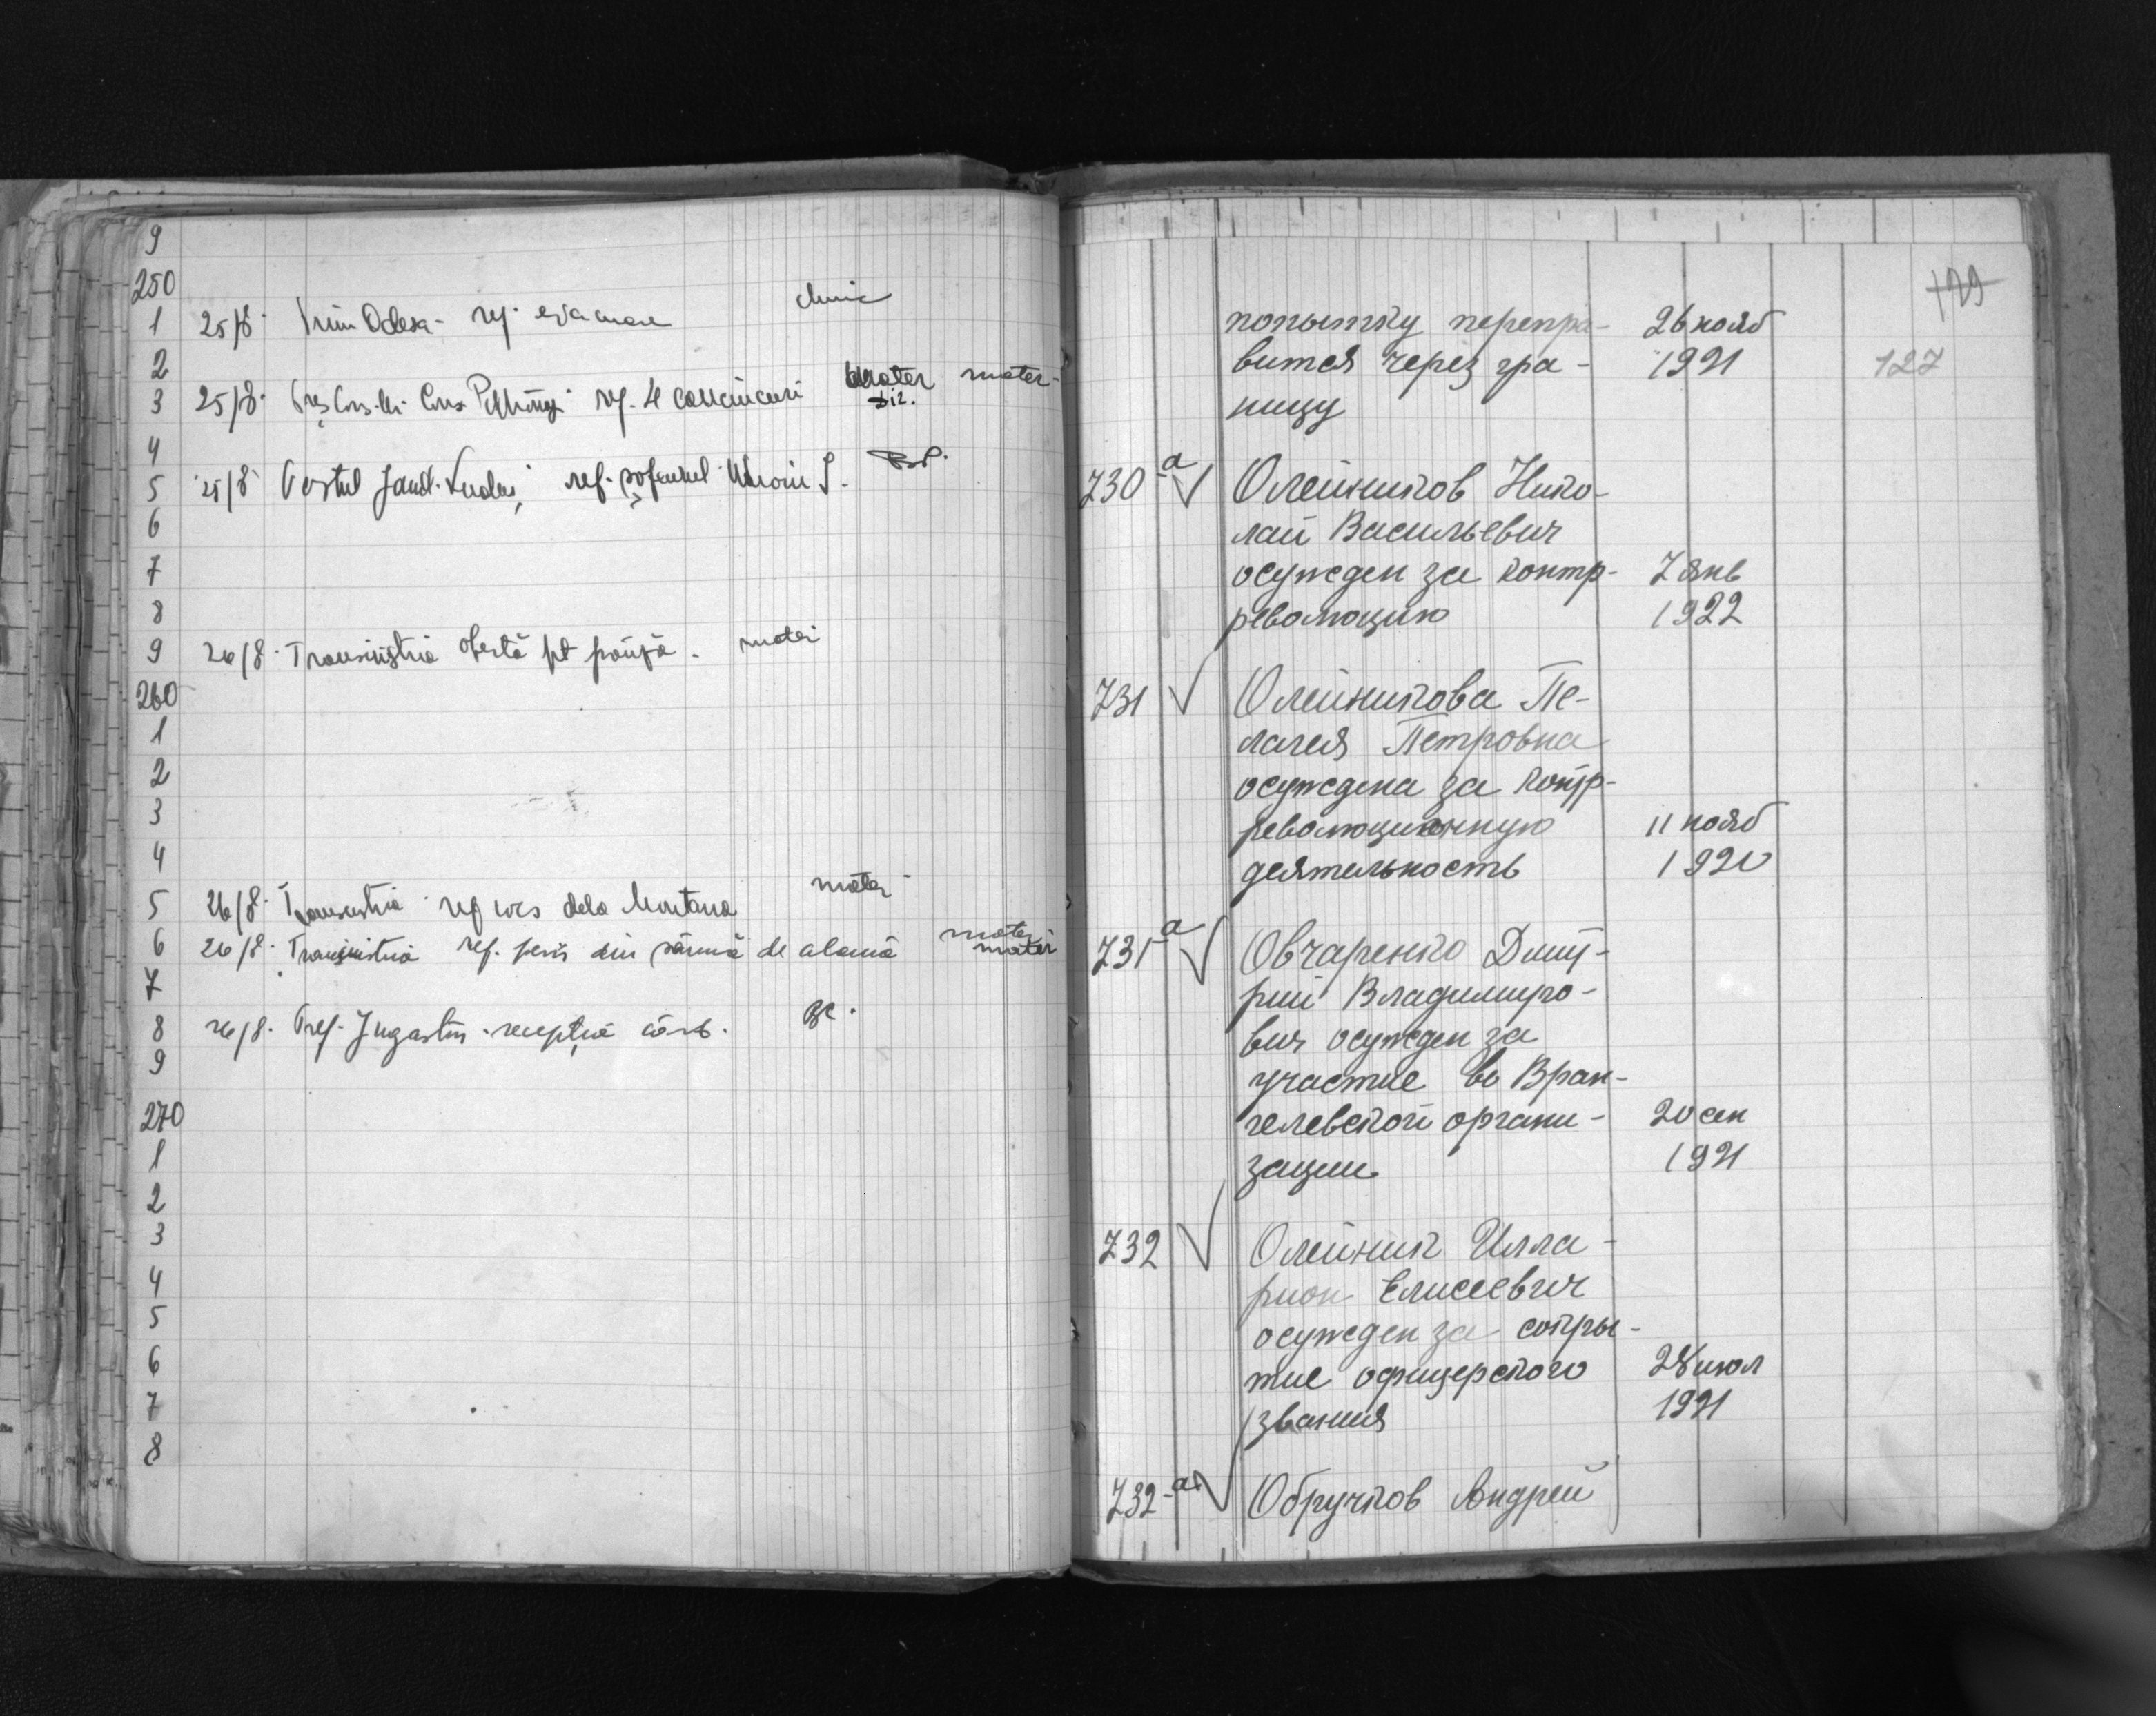 9
250
1 25/8. Prim Odesa - ref.
2
3 25/8. ref. 4 mater mater-
4
5 25/8 Postul Jand. ref. șoferul
6
7
8
9 26/8. Transnistria ofertă pt pânză. mater
260
1
2
3
4
5 26/8. Transnistria ref dela Montana mater
6 26/8. Transnistria ref. perii din sârmă de alamă mater mater
7
8 26/8. Pref. Jugastru recepția
9
270
1
2
3
4
5
6
7
8
129
127
попытку перепра- 26 нояб
вится через гра- 1921
ницу
730 а Олейников Нико-
лай Васильевич
осужден за контр- 7 янв
революцию 1922
731 Олейникова Пе-
лагея Петровна
осуждена за контр-
революционную 11 нояб
деятельность 1920
731 а Овчаренко Дмит-
рий Владимиро-
вич осужден за
участие во Вран-
гелевской органи- 20 сен
зации 1921
732 Олейник Илла-
рион Елисеевич
осужден за сокры-
тие офицерского 28 июл
звания 1921
732-а Обручков Андрей